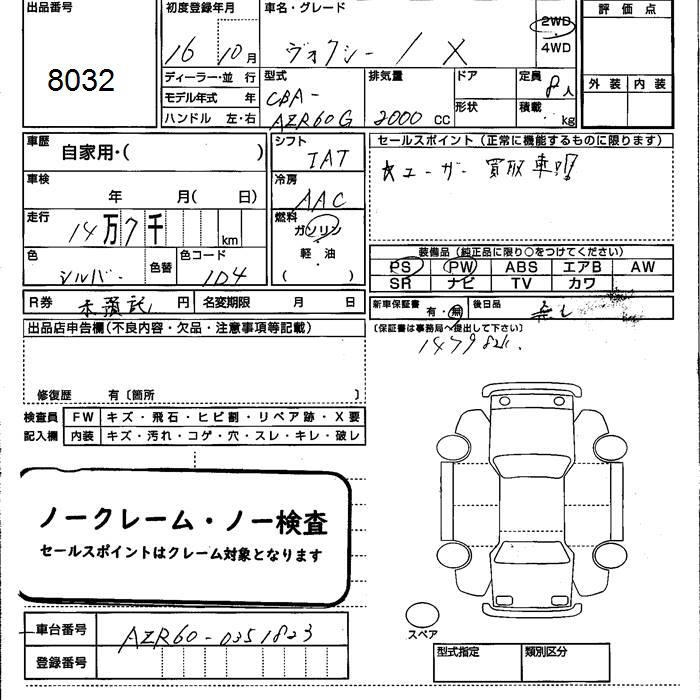 出品番号
8032
初度登録年月
16 10月
車名・グレード
ヴォクシー / X
2WD
4WD
評価点
外装 内装
ディーラー・並行
モデル年式 年
ハンドル 左・右
型式
CBA-
AZR60G
排気量
2000 cc
ドア
形状
定員
8人
積載
kg
車歴
自家用・( )
車検
年 月( 日)
走行
14万7千 km
色
シルバー
色替
色コード
1D4
シフト
IAT
冷房
AAC
燃料
ガソリン
軽油
( )
セールスポイント(正常に機能するものに限ります)
☆ユーザー買取車!!
装備品(純正品に限り○をつけてください)
PS PW ABS エアB AW
SR ナビ TV カワ
R券 円
名変期限 月 日
新車保証書
有・無
後日品
無し
(保証書は事務局へ提出して下さい)
出品店申告欄(不良内容・欠品・注意事項等記載)
修復歴 有〔箇所 〕
検査員 FW キズ・飛石・ヒビ割・リペア跡・X要
記入欄 内装 キズ・汚れ・コゲ・穴・スレ・キレ・破レ
ノークレーム・ノー検査
セールスポイントはクレーム対象となります
車台番号
AZR60-0351823
登録番号
スペア
型式指定
類別区分